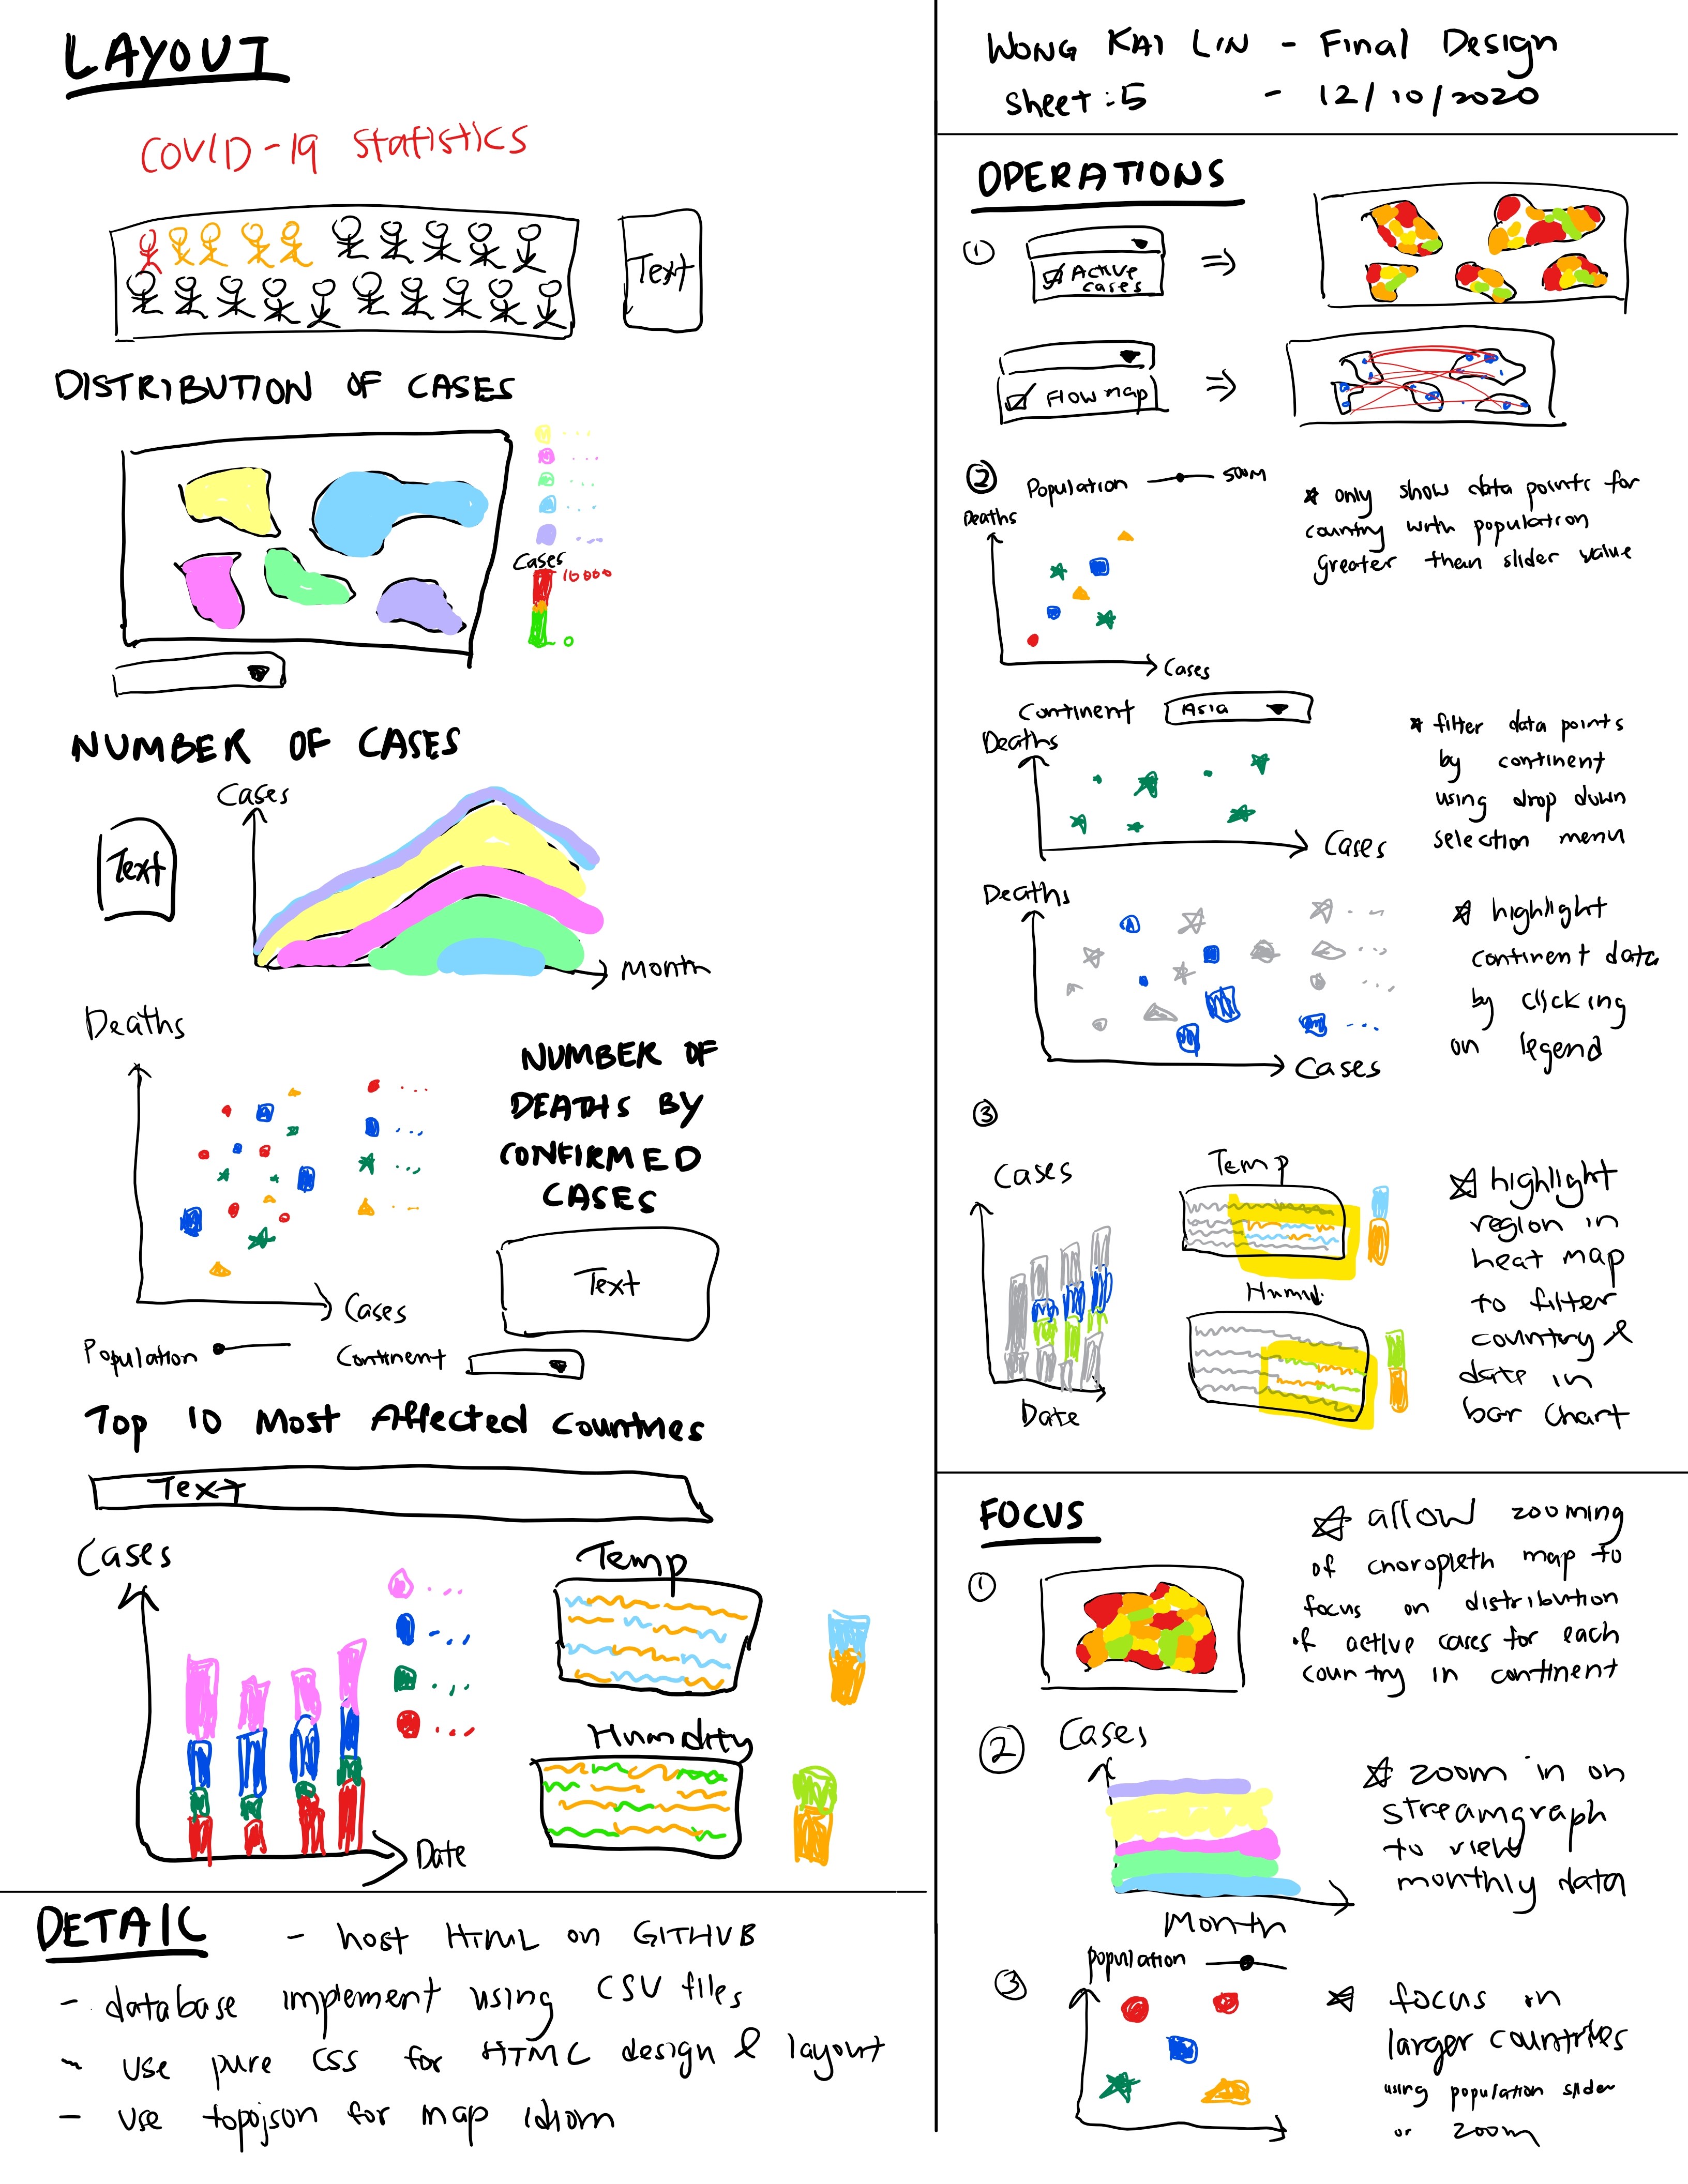 LAYOUT
COVID-19 statistics
Text
DISTRIBUTION OF CASES
Cases
10000
0
NUMBER OF CASES
Cases
Text
Month
Deaths
NUMBER OF
DEATHS BY
CONFIRMED
CASES
Text
Cases
Population
Continent
Top 10 Most Affected Countries
Text
Cases
Temp
Humidity
Date
DETAIL
- host HTML on GITHUB
- database implement using CSV files
- use pure CSS for HTML design & layout
- use topojson for map idiom
WONG KAI LIN - Final Design
sheet:5 - 12/10/2020
OPERATIONS
①
Active
cases
Flow map
②
Population
500M
Deaths
Cases
* only show data points for
country with population
Greater than slider value
Continent
Asia
Deaths
Cases
* filter data points
by continent
using drop down
selection menu
Deaths
Cases
* highlight
continent data
by clicking
on legend
③
Cases
Date
Temp
Humid.
* highlight
region in
heat map
to filter
country &
date in
bar chart
FOCUS
①
* allow zooming
of choropleth map to
focus on distribution
of active cases for each
country in continent
②
Cases
Month
* zoom in on
streamgraph
to view
monthly data
③
population
* focus on
larger countries
using population slider
or zoom